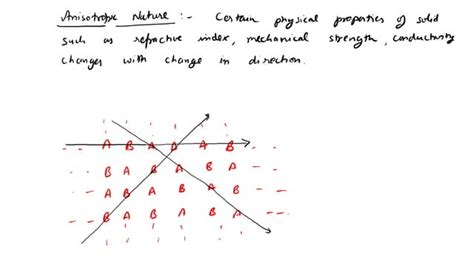 Anisotropic Nature :- Certain physical properties of solid
such as refractive index, mechanical strength, conductivity
changes with change in direction.
A B A A A B
B A B A B A
A B A B A B
B A B A B A